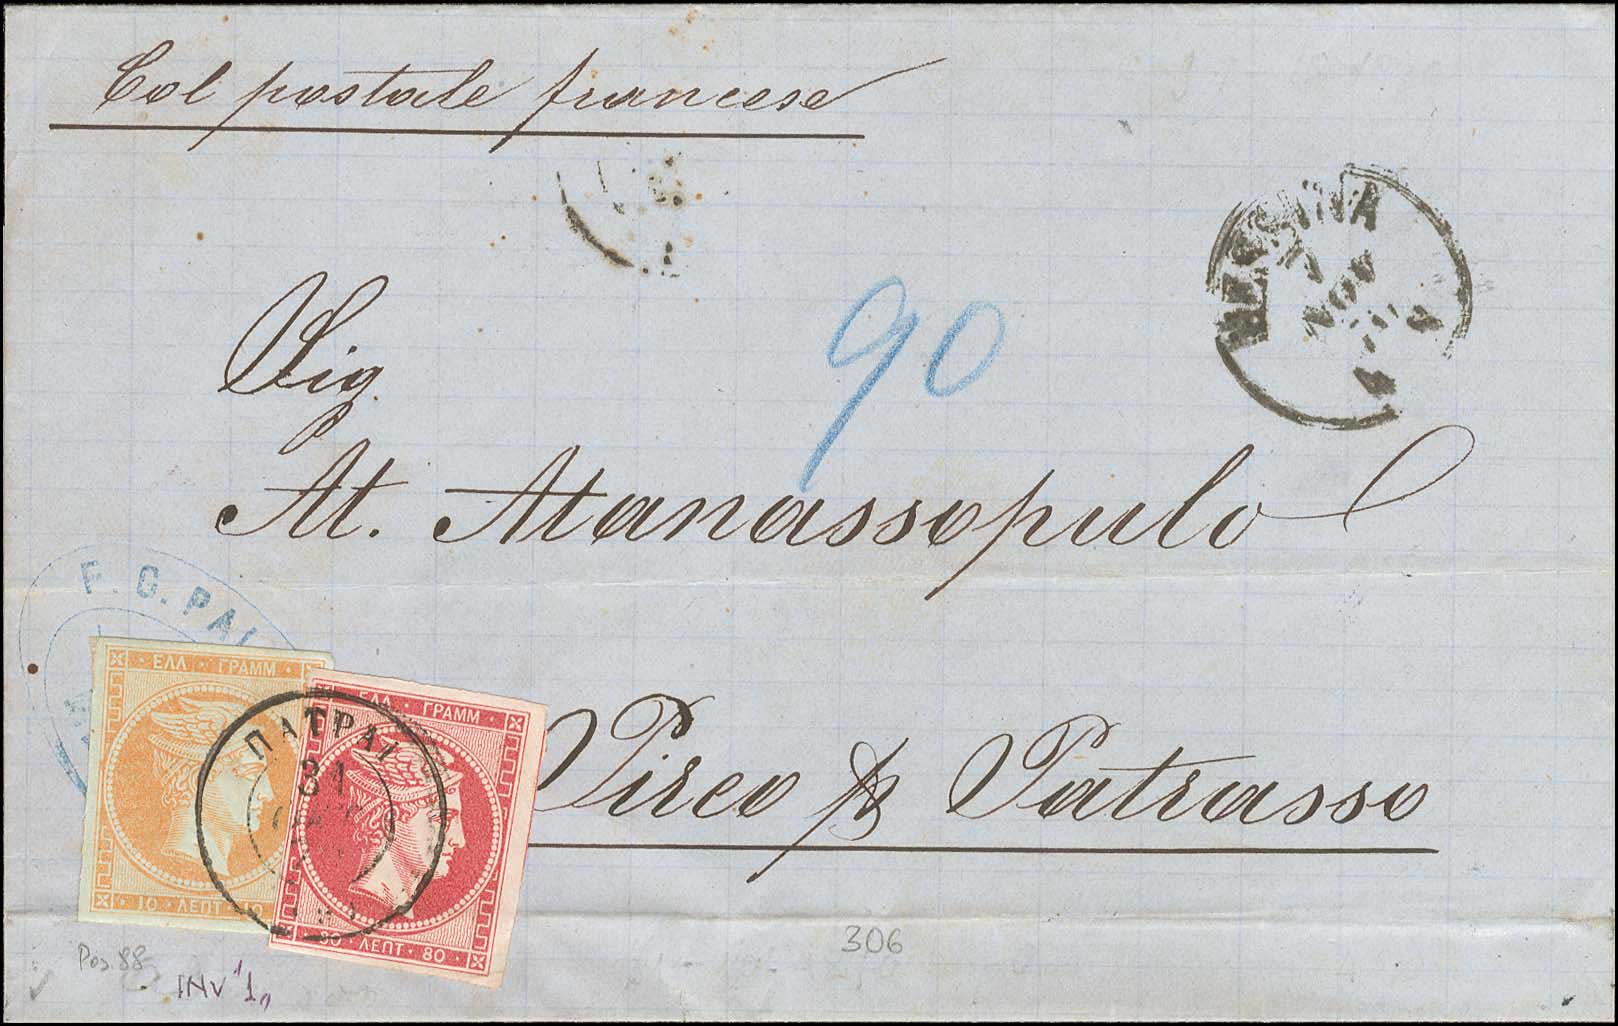 Col postale francese
MESSINA
NOV
90
Sig
At. Atanassopulo
F. C. PAL
ΕΛΛ · ΓΡΑΜΜ
10 · ΛΕΠΤ · 10
ΕΛΛ · ΓΡΑΜΜ
80 · ΛΕΠΤ · 80
ΠΑΤΡΑΙ
31
Pireo p Patrasso
306
Pos. 88
INV 1